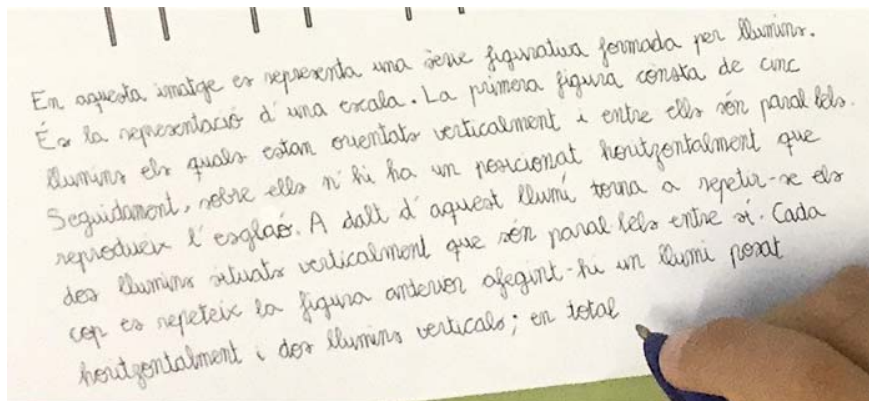 En aquesta imatge es representa una sèrie figurativa formada per llumins.
És la representació d'una escala. La primera figura consta de cinc
llumins els quals estan orientats verticalment i entre ells són paral·lels.
Seguidament, sobre ells n'hi ha un posicionat horitzontalment que
reprodueix l'esglaó. A dalt d'aquest llumí torna a repetir-se els
dos llumins situats verticalment que són paral·lels entre sí. Cada
cop es repeteix la figura anterior afegint-hi un llumi posat
horitzontalment i dos llumins verticals; en total